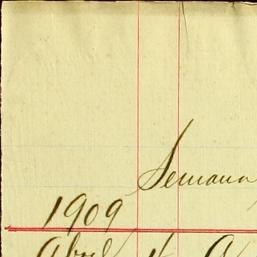 Semana
1909
Abril